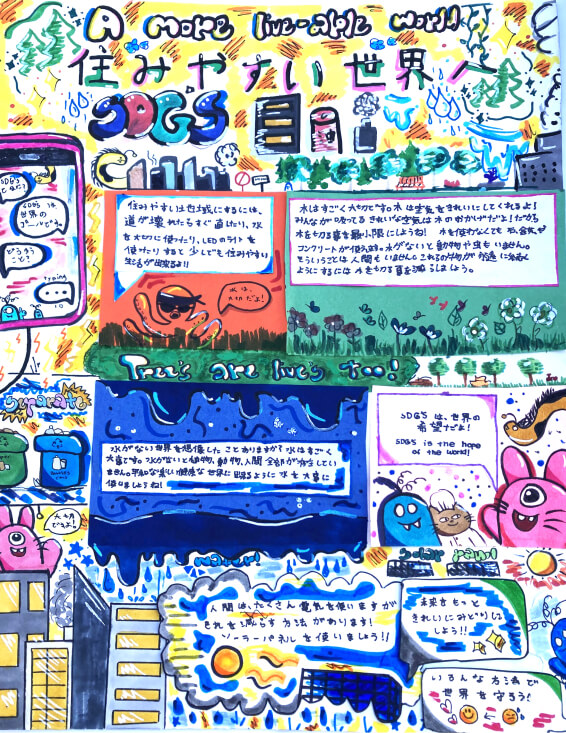 A more live-able world
住みやすい世界へ
SDG'S
SDG'S
SDGSは
世界の
どういう
こと?
typing
住みやすい地域にするには、
道が壊れたらすぐ直したり、水
を大切に使ったり、LEDのライトを
使ったりすると少しでも住みやすい
生活が出来るよ!!
水は、
大切だよ!
木はすごく大切です。木は空気をきれいにしてくれるよ!
みんながすってるきれいな空気は木のおかげだよ!だから
木を切る事を最小限にしようね!
コンクリートが
木がないと動物や虫もいません。
そういうことは人間もいません。
ようにするには木を切る事を減らしましょう。
Tree's are live's too!
Separate
水がない世界を想像したことありますか?水はすごく
大事です。水がないと植物、動物、人間全部が存在してい
ません。平和な美しい健康な世界に出来るように水を大事に
使いましょうね!
SDGSは、世界の
希望だよ!
SDGS is the hope
of the world!
大切
だよ。
water!
solar panel
人間は、たくさん電気を使いますが
それを減らす方法があります!
ソーラーパネルを使いましょう!!
未来をもっと
きれいにみどりに
しよう!!
いろんな方法で
世界を守ろう!